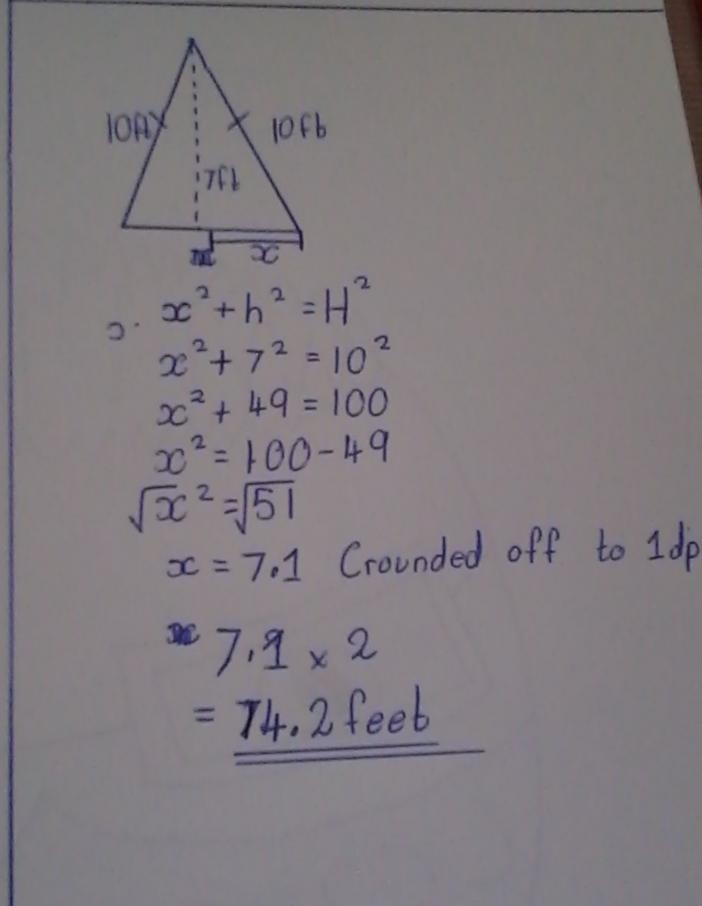 10ft 10ft
7ft
x
x² + h² = H²
x² + 7² = 10²
x² + 49 = 100
x² = 100 - 49
√x² = √51
x = 7.1 (rounded off to 1dp
7.1 × 2
= 14.2 feet